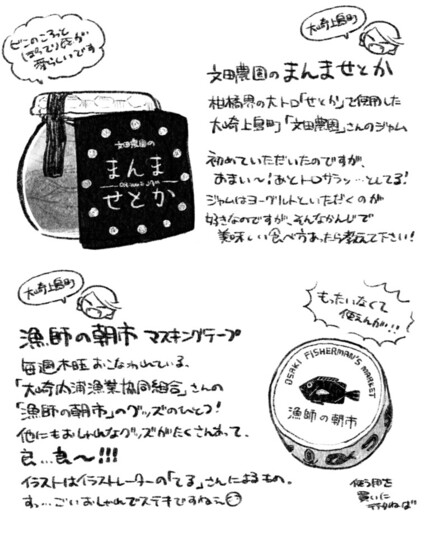 ビンのころっと
ぽってり感が
愛らしいです
大崎上島町
文田農園のまんませとか
柑橘界の大トロ「せとか」を使用した
大崎上島町「文田農園」さんのジャム
文田農園の
まんま
せとか
初めていただいたのですが、
あまい〜!あとトロサラッ…としてる!
ジャムはヨーグルトといただくのが
好きなのですが、そんなかんじで
美味しい食べ方あったら教えて下さい!
大崎上島町
漁師の朝市 マスキングテープ
毎週木曜おこなわれている、
「大崎内浦漁業協同組合」さんの
「漁師の朝市」のグッズのひとつ!
他にもおしゃれなグッズがたくさんあって、
良…良〜!!!
イラストはイラストレーターの「てる」さんによるもの。
すっ…ごいおしゃれでステキですね〜
もったいなくて
使えんがい!!
OSAKI FISHERMAN'S MARKET
漁師の朝市
使う用を
買いに
行かねば